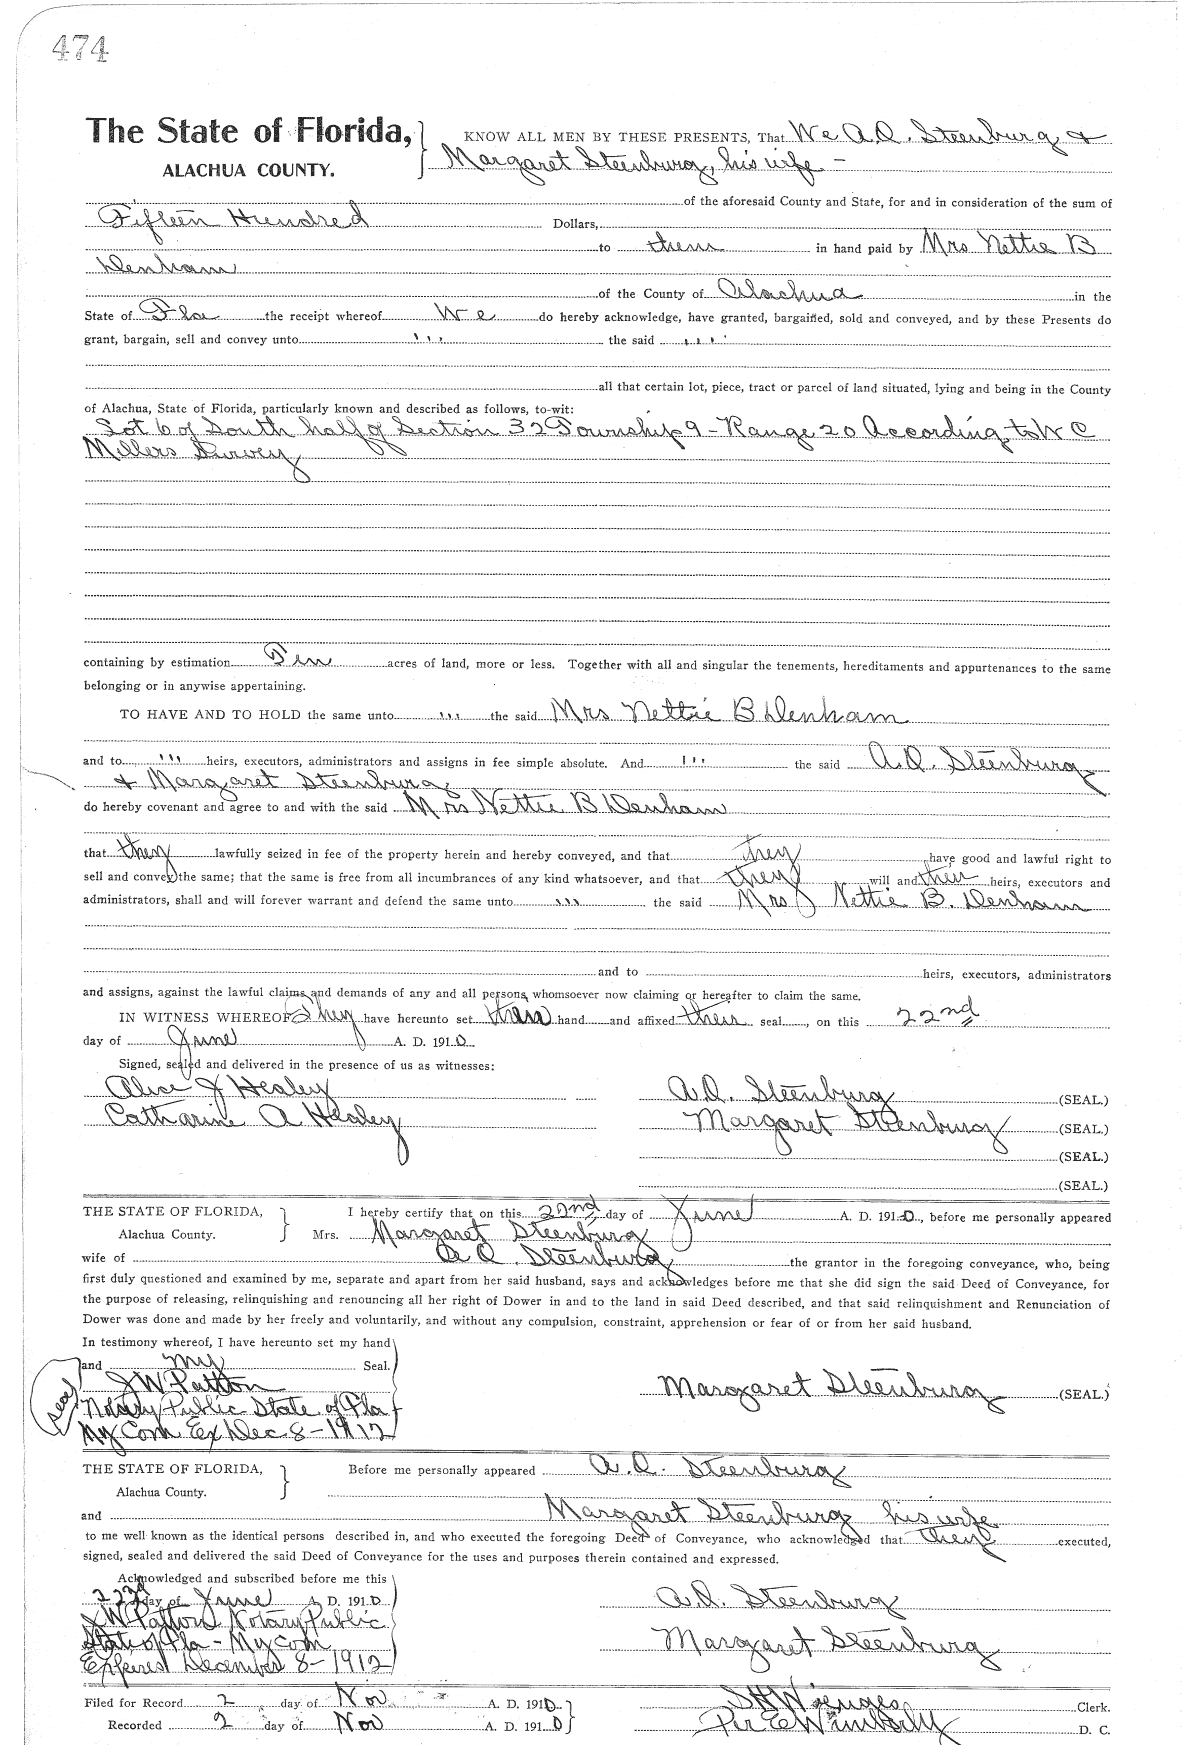 474
The State of Florida, KNOW ALL MEN BY THESE PRESENTS, That We A.D. Steenburg &
ALACHUA COUNTY. Margaret Steenburg, his wife —
of the aforesaid County and State, for and in consideration of the sum of
Fifteen Hundred Dollars,
to them in hand paid by Mrs Nettie B
Denham
of the County of Alachua in the
State of Fla the receipt whereof We do hereby acknowledge, have granted, bargained, sold and conveyed, and by these Presents do
grant, bargain, sell and convey unto ''' the said ''''
all that certain lot, piece, tract or parcel of land situated, lying and being in the County
of Alachua, State of Florida, particularly known and described as follows, to-wit:
Lot 6 of South half of Section 32 Township 9 - Range 20 According to W C
Millers Survey
containing by estimation Ten acres of land, more or less. Together with all and singular the tenements, hereditaments and appurtenances to the same
belonging or in anywise appertaining.
TO HAVE AND TO HOLD the same unto ''' the said Mrs Nettie B Denham
and to ''' heirs, executors, administrators and assigns in fee simple absolute. And ''' the said A.D. Steenburg
& Margaret Steenburg
do hereby covenant and agree to and with the said Mrs Nettie B Denham
that they lawfully seized in fee of the property herein and hereby conveyed, and that they have good and lawful right to
sell and convey the same; that the same is free from all incumbrances of any kind whatsoever, and that they will and their heirs, executors and
administrators, shall and will forever warrant and defend the same unto ''' the said Mrs Nettie B. Denham
and to heirs, executors, administrators
and assigns, against the lawful claims and demands of any and all persons whomsoever now claiming or hereafter to claim the same.
IN WITNESS WHEREOF They have hereunto set their hand and affixed their seal, on this 22nd
day of June A. D. 1910
Signed, sealed and delivered in the presence of us as witnesses:
Alice J Healey A.D. Steenburg (SEAL.)
Catharine A Healey Margaret Steenburg (SEAL.)
(SEAL.)
(SEAL.)
THE STATE OF FLORIDA, I hereby certify that on this 22nd day of June A. D. 1910, before me personally appeared
Alachua County. Mrs. Margaret Steenburg
wife of A D. Steenburg the grantor in the foregoing conveyance, who, being
first duly questioned and examined by me, separate and apart from her said husband, says and acknowledges before me that she did sign the said Deed of Conveyance, for
the purpose of releasing, relinquishing and renouncing all her right of Dower in and to the land in said Deed described, and that said relinquishment and Renunciation of
Dower was done and made by her freely and voluntarily, and without any compulsion, constraint, apprehension or fear of or from her said husband.
In testimony whereof, I have hereunto set my hand
and my Seal.
seal J W Patton Margaret Steenburg (SEAL.)
Notary Public State of Fla
My Com Ex Dec 8-1912
THE STATE OF FLORIDA, Before me personally appeared A.D. Steenburg
Alachua County.
and Margaret Steenburg his wife
to me well known as the identical persons described in, and who executed the foregoing Deed of Conveyance, who acknowledged that they executed,
signed, sealed and delivered the said Deed of Conveyance for the uses and purposes therein contained and expressed.
Acknowledged and subscribed before me this
22d day of June A. D. 1910 A.D. Steenburg
J W Patton Notary Public
State of Fla - My Com Margaret Steenburg
Expires December 8-1912
Filed for Record 2 day of Nov A. D. 1910 S H Wienges Clerk.
Recorded 2 day of Nov A. D. 1910 Per E Wimberly D. C.